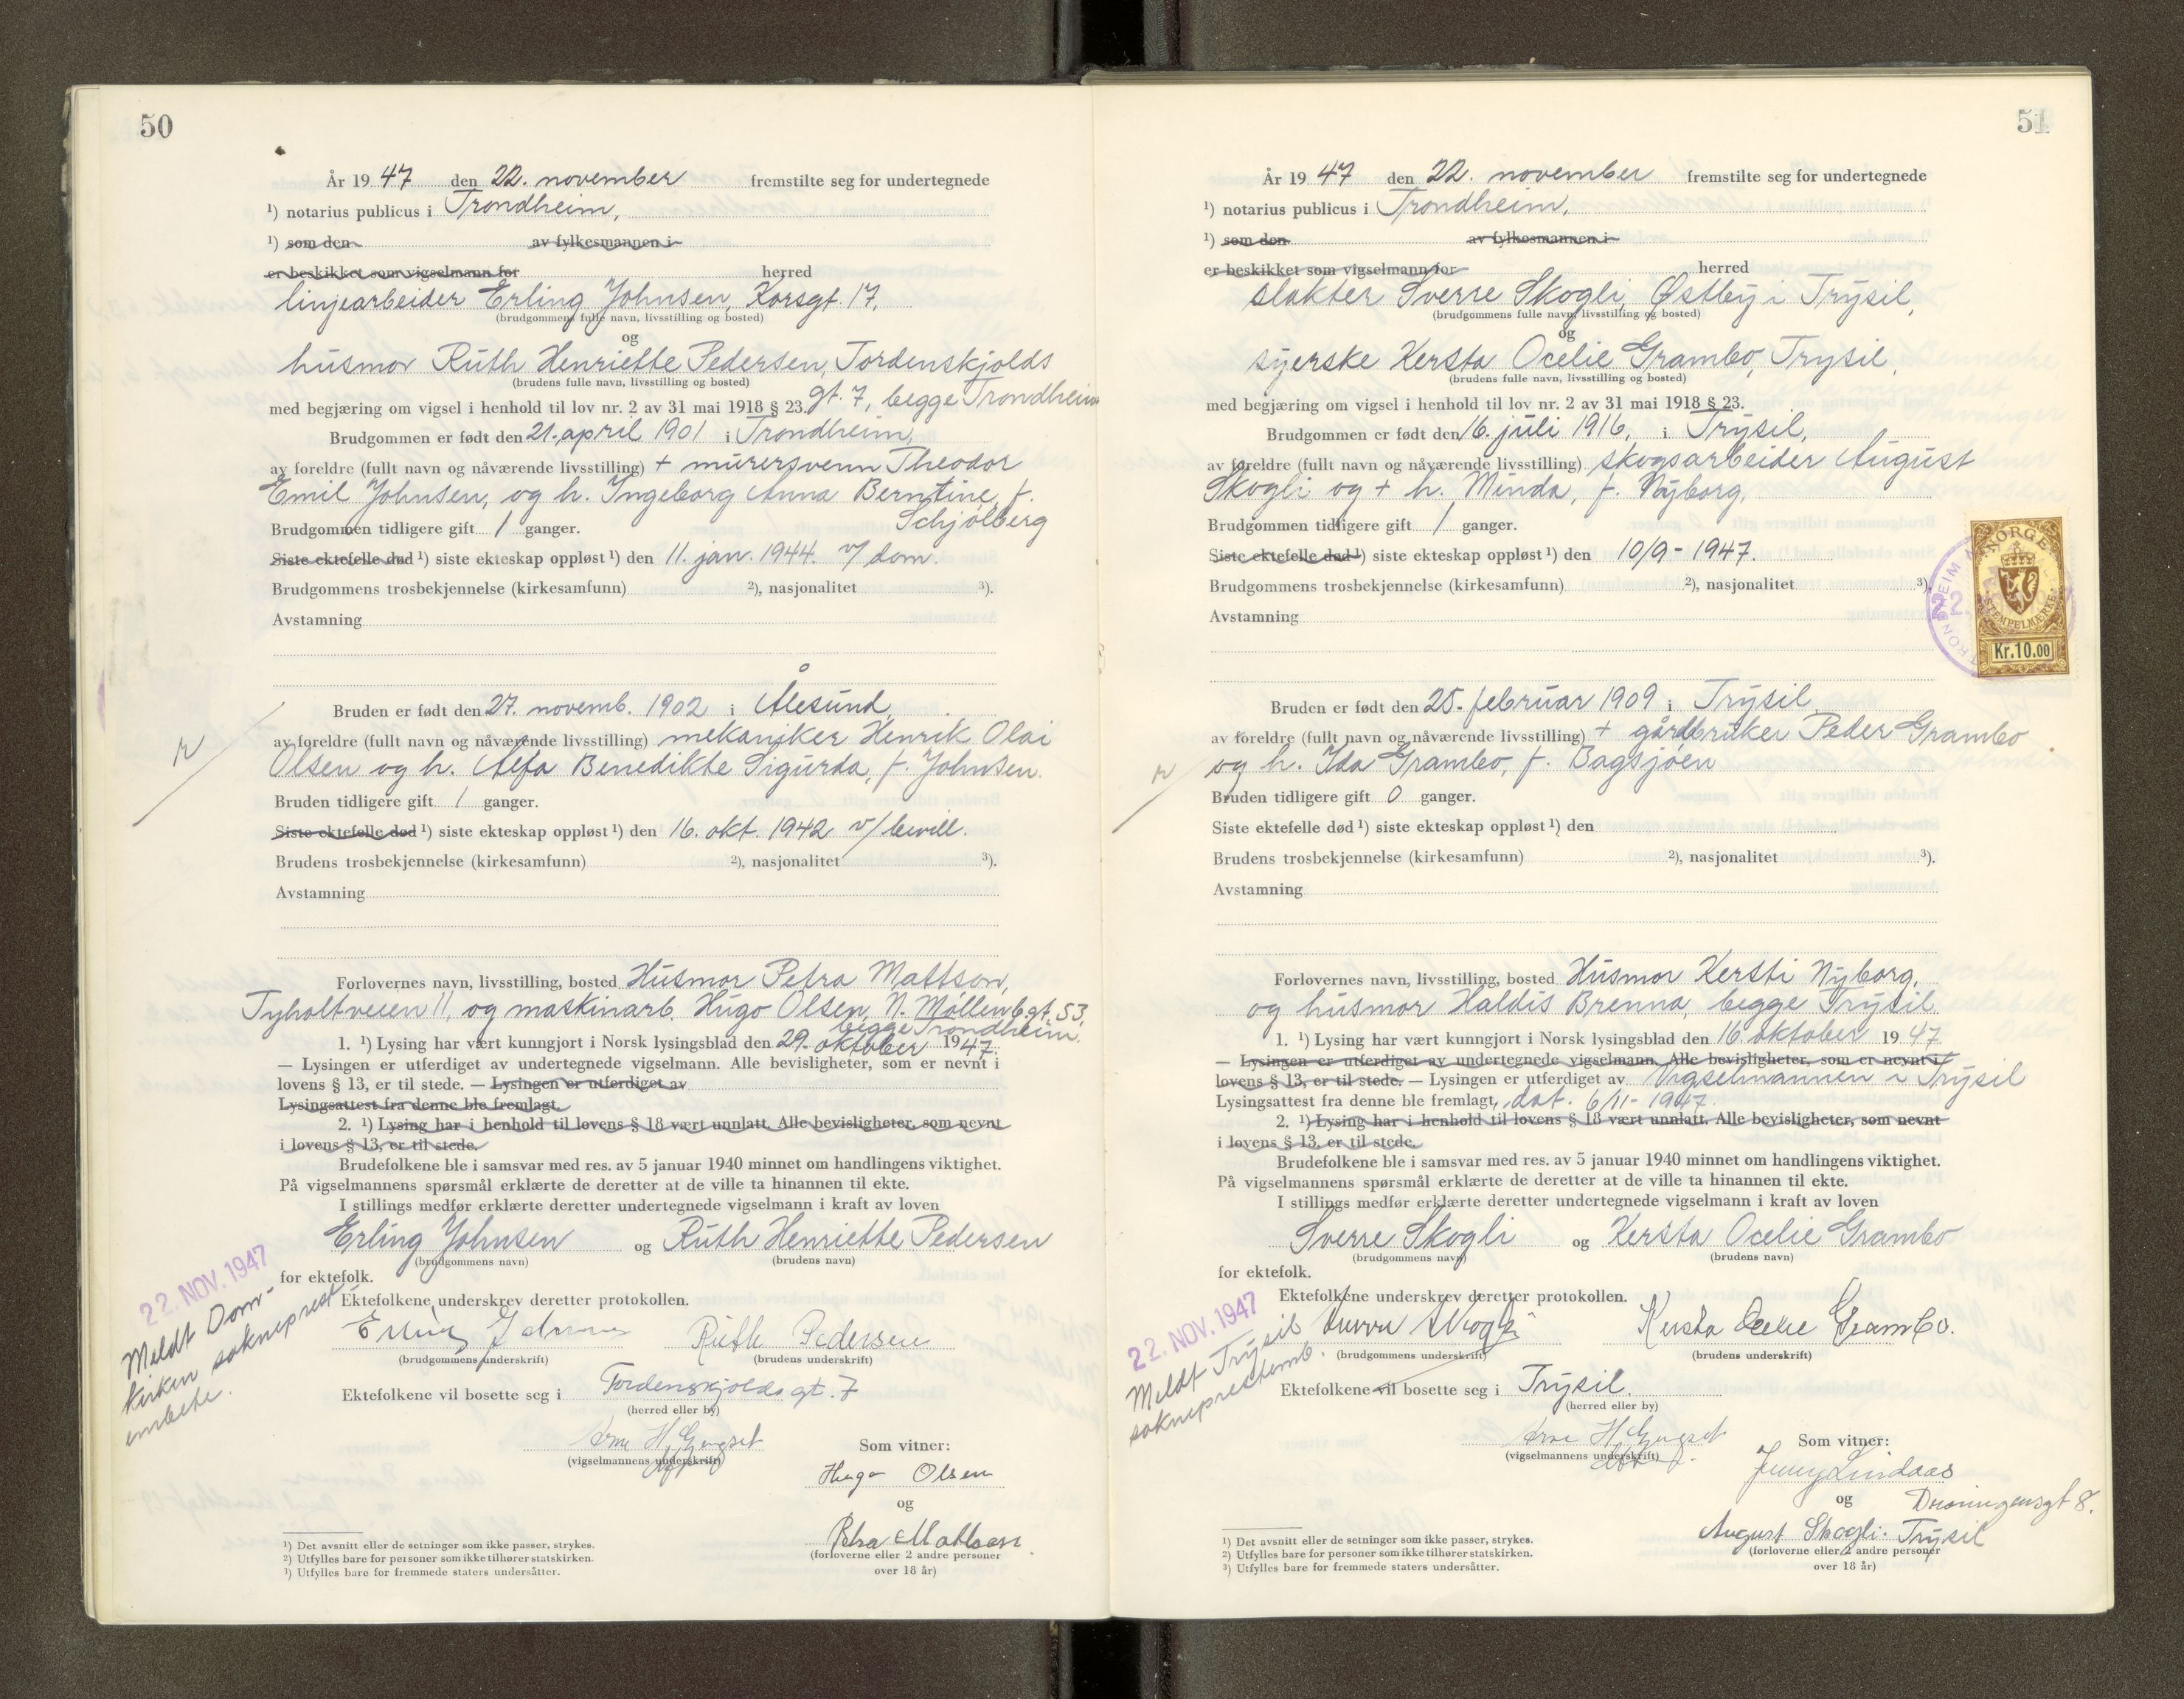 50
År 1947 den 22. november fremstilte seg for undertegnede
¹) notarius publicus i Trondheim,
¹) som den av fylkesmannen i
er beskikket som vigselmann for herred
linjearbeider Erling Johnsen, Korsgt. 17,
(brudgommens fulle navn, livsstilling og bosted)
og
husmor Ruth Henriette Pedersen, Tordenskjolds
(brudens fulle navn, livsstilling og bosted)
gt. 7, begge Trondheim
med begjæring om vigsel i henhold til lov nr. 2 av 31 mai 1918 § 23.
Brudgommen er født den 21. april 1901 i Trondheim,
av foreldre (fullt navn og nåværende livsstilling) + murersvenn Theodor
Emil Johnsen, og h. Ingeborg Anna Berntine, f.
Schjølberg
Brudgommen tidligere gift 1 ganger.
Siste ektefelle død ¹) siste ekteskap oppløst ¹) den 11. jan. 1944. v/ dom.
Brudgommens trosbekjennelse (kirkesamfunn) ²), nasjonalitet ³).
Avstamning
Bruden er født den 27. novemb. 1902 i Ålesund,
av foreldre (fullt navn og nåværende livsstilling) mekaniker Henrik Olai
Olsen og h. Alfa Benedikte Sigurda, f. Johnsen.
Bruden tidligere gift 1 ganger.
Siste ektefelle død ¹) siste ekteskap oppløst ¹) den 16. okt. 1942 v/ bevill.
Brudens trosbekjennelse (kirkesamfunn) ²), nasjonalitet ³).
Avstamning
Forlovernes navn, livsstilling, bosted Husmor Petra Mattson,
Tyholtveien 11, og maskinarb. Hugo Olsen, N. Møllenbgt. 53,
begge Trondheim.
1. ¹) Lysing har vært kunngjort i Norsk lysingsblad den 29. oktober 1947.
— Lysingen er utferdiget av undertegnede vigselmann. Alle bevisligheter, som er nevnt i
lovens § 13, er til stede. — Lysingen er utferdiget av
Lysingsattest fra denne ble fremlagt.
2. ¹) Lysing har i henhold til lovens § 18 vært unnlatt. Alle bevisligheter, som nevnt
i lovens § 13, er til stede.
Brudefolkene ble i samsvar med res. av 5 januar 1940 minnet om handlingens viktighet.
På vigselmannens spørsmål erklærte de deretter at de ville ta hinannen til ekte.
I stillings medfør erklærte deretter undertegnede vigselmann i kraft av loven
Erling Johnsen og Ruth Henriette Pedersen
(brudgommens navn) (brudens navn)
for ektefolk.
22. NOV. 1947
Meldt Dom-
kirken sokneprest
embete.
Ektefolkene underskrev deretter protokollen.
Erling Johnsen Ruth Pedersen
(brudgommens underskrift) (brudens underskrift)
Ektefolkene vil bosette seg i Tordenskjolds gt. 7
(herred eller by)
Arne H.
(vigselmannens underskrift)
Som vitner:
Hugo Olsen
og
Petra Mattson
(forloverne eller 2 andre personer
over 18 år)
¹) Det avsnitt eller de setninger som ikke passer, strykes.
²) Utfylles bare for personer som ikke tilhører statskirken.
³) Utfylles bare for fremmede staters undersåtter.
51
År 1947 den 22. november fremstilte seg for undertegnede
¹) notarius publicus i Trondheim,
¹) som den av fylkesmannen i
er beskikket som vigselmann for herred
slakter Sverre Skogli, Østby i Trysil,
(brudgommens fulle navn, livsstilling og bosted)
og
syerske Kersta Ocelie Grambo, Trysil,
(brudens fulle navn, livsstilling og bosted)
med begjæring om vigsel i henhold til lov nr. 2 av 31 mai 1918 § 23.
Brudgommen er født den 16. juli 1916, i Trysil,
av foreldre (fullt navn og nåværende livsstilling) skogsarbeider August
Skogli og + h. Minda, f. Nyborg,
Brudgommen tidligere gift 1 ganger.
Siste ektefelle død ¹) siste ekteskap oppløst ¹) den 10/9 - 1947.
Brudgommens trosbekjennelse (kirkesamfunn) ²), nasjonalitet ³).
Avstamning
NORGE
STEMPELMERKE
Kr.10.00
Bruden er født den 25. februar 1909 i Trysil,
av foreldre (fullt navn og nåværende livsstilling) + gårdbruker Peder Grambo
og h. Ida Grambo, f. Bagsjøen
Bruden tidligere gift 0 ganger.
Siste ektefelle død ¹) siste ekteskap oppløst ¹) den
Brudens trosbekjennelse (kirkesamfunn) ²), nasjonalitet ³).
Avstamning
Forlovernes navn, livsstilling, bosted Husmor Kersti Nyborg,
og husmor Haldis Brenna, begge Trysil
1. ¹) Lysing har vært kunngjort i Norsk lysingsblad den 16. oktober 1947
— Lysingen er utferdiget av undertegnede vigselmann. Alle bevisligheter, som er nevnt i
lovens § 13, er til stede. — Lysingen er utferdiget av Vigselmannen i Trysil
Lysingsattest fra denne ble fremlagt, dat. 6/11 - 1947.
2. ¹) Lysing har i henhold til lovens § 18 vært unnlatt. Alle bevisligheter, som nevnt
i lovens § 13, er til stede.
Brudefolkene ble i samsvar med res. av 5 januar 1940 minnet om handlingens viktighet.
På vigselmannens spørsmål erklærte de deretter at de ville ta hinannen til ekte.
I stillings medfør erklærte deretter undertegnede vigselmann i kraft av loven
Sverre Skogli og Kersta Ocelie Grambo
(brudgommens navn) (brudens navn)
for ektefolk.
22. NOV. 1947
Meldt Trysil
sokneprestemb.
Ektefolkene underskrev deretter protokollen.
Sverre Skogli Kersta Ocelie Grambo.
(brudgommens underskrift) (brudens underskrift)
Ektefolkene vil bosette seg i Trysil.
(herred eller by)
Arne H.
(vigselmannens underskrift)
Som vitner:
Jenny Lindaas
og Dronningensgt 8.
August Skogli. Trysil
(forloverne eller 2 andre personer
over 18 år)
¹) Det avsnitt eller de setninger som ikke passer, strykes.
²) Utfylles bare for personer som ikke tilhører statskirken.
³) Utfylles bare for fremmede staters undersåtter.